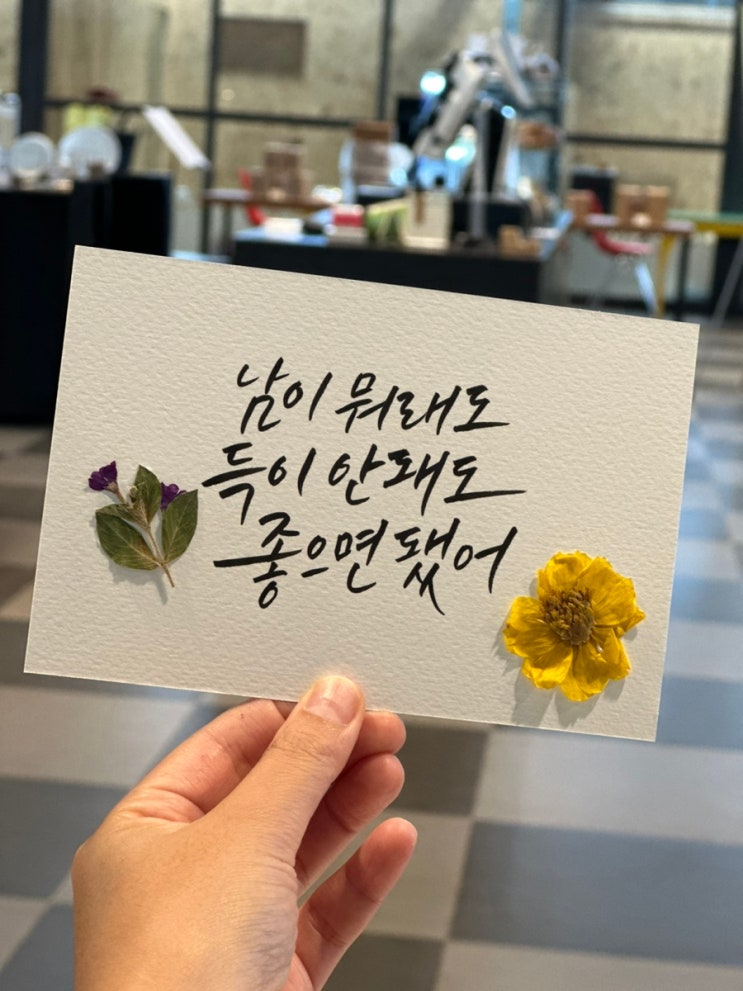 남이 뭐래도
득이 안돼도
좋으면 됐어